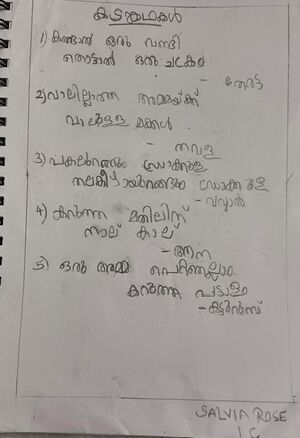 കടങ്കഥകൾ
1) കണ്ടാൽ ഒരു വണ്ടി
തൊട്ടാൽ ഒരു ചക്രം
- തേരട്ട
2) വാലില്ലാത്ത അമ്മയ്ക്ക്
വാലുള്ള മക്കൾ .
- തവള
3) പകലുറങ്ങും
തലകീഴായുറങ്ങും
- വവ്വാൽ
4) കറുത്ത മതിലിന്
നാല് കാല്
- ആന
5) ഒരു അമ്മ പെറ്റതെല്ലാം
കറുത്ത പട്ടാളം
- കട്ടുറുമ്പ്
SALVIA ROSE
1 C